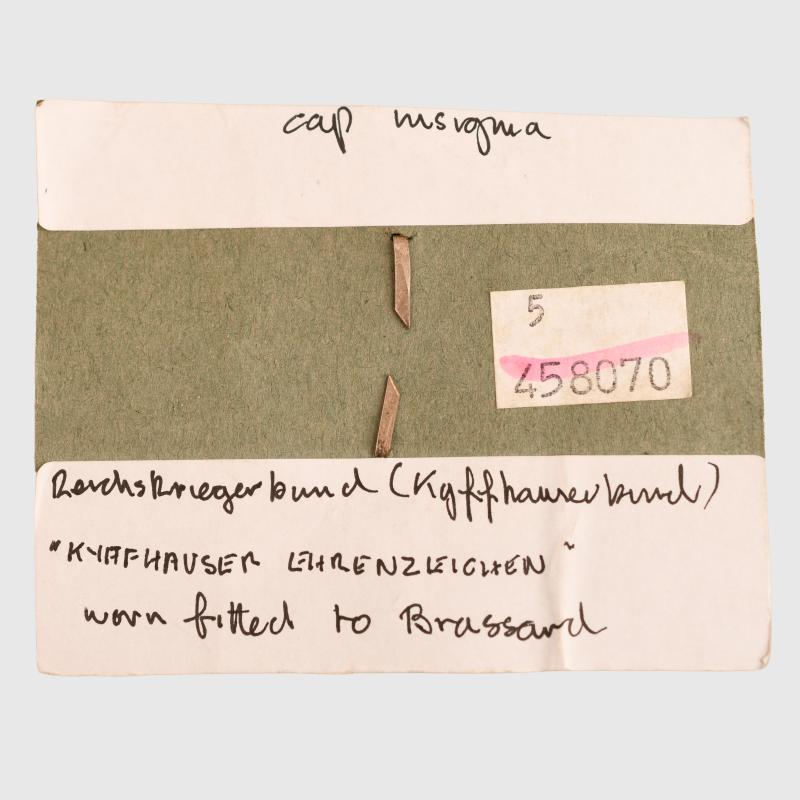 cap insignia
5
458070
Reichskriegerbund (Kyffhauserbund)
"KYFFHAUSER EHRENZEICHEN"
worn fitted to Brassard